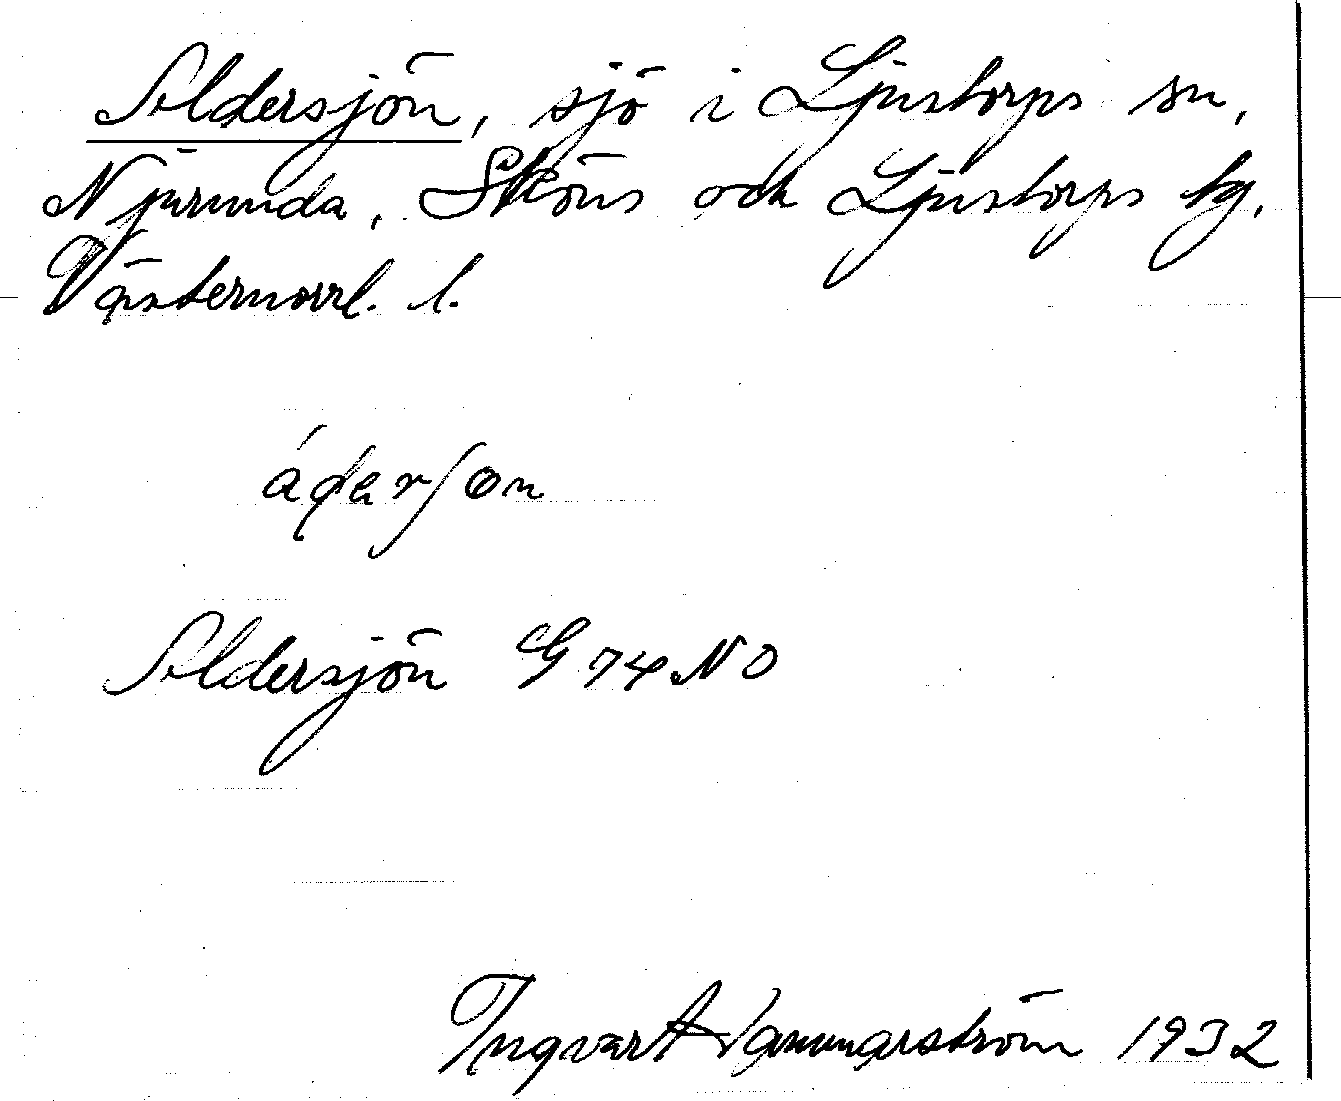 Aldersjön, sjö i Ljustorps sn,
Njurunda, Sköns och Ljustorps tg,
Västernorrl. l.
áderʃon
Aldersjön G 74 NO
Ingvart Hammarström 1932